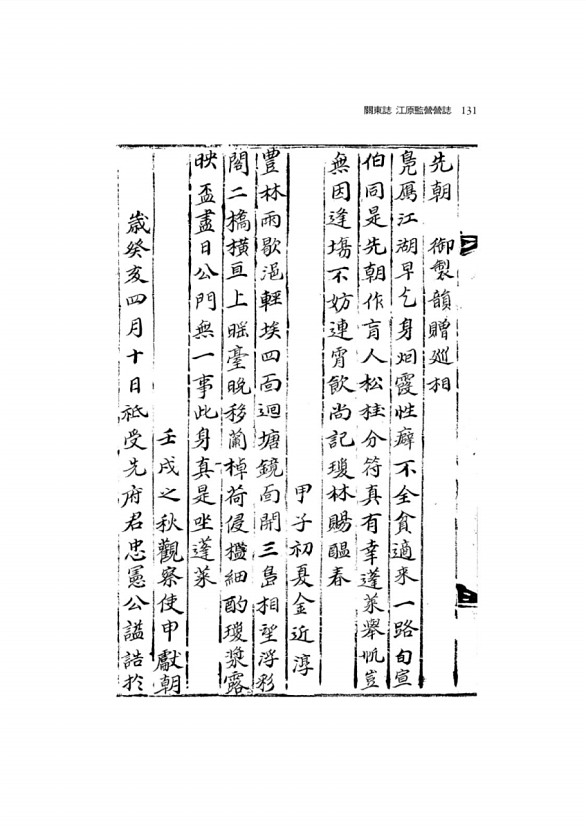 關東誌 江原監營營誌 131
先朝 御製韻贈巡相
鳧鴈江湖早乞身烟霞性癖不全貧適來一路旬宣
伯同是先朝作育人松桂分符真有幸蓬萊舉帆豈
無因逢場不妨連宵飲尚記瓊林賜醞春
甲子初夏金近淳
豊林雨歇浥輕埃四面迴塘鏡面開三島相望浮彩
閣二橋橫亘上瑤臺晚移蘭棹荷侵檻細酌瓊漿露
映盃盡日公門無一事此身真是坐蓬萊
壬戌之秋觀察使申獻朝
歲癸亥四月十日祗受先府君忠憲公謚誥於